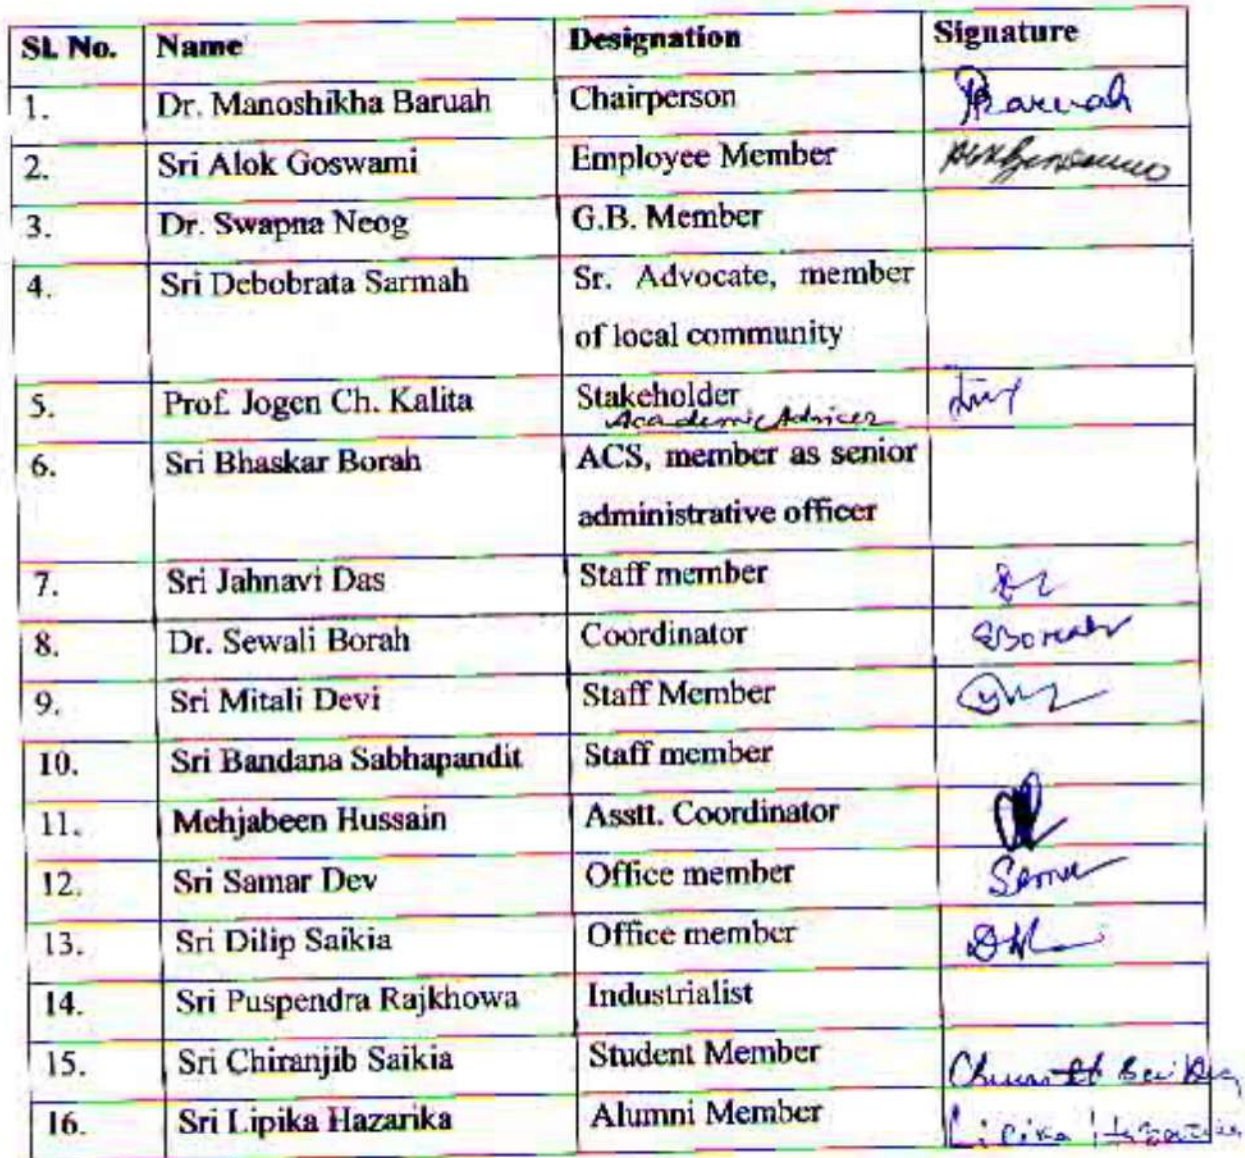 Sl. No. Name Designation Signature
1. Dr. Manoshikha Baruah Chairperson Baruah
2. Sri Alok Goswami Employee Member
3. Dr. Swapna Neog G.B. Member
4. Sri Debobrata Sarmah Sr. Advocate, member
of local community
5. Prof. Jogen Ch. Kalita Stakeholder
Academic Advicer
6. Sri Bhaskar Borah ACS, member as senior
administrative officer
7. Sri Jahnavi Das Staff member
8. Dr. Sewali Borah Coordinator SBorah
9. Sri Mitali Devi Staff Member
10. Sri Bandana Sabhapandit Staff member
11. Mehjabeen Hussain Asstt. Coordinator
12. Sri Samar Dev Office member
13. Sri Dilip Saikia Office member
14. Sri Puspendra Rajkhowa Industrialist
15. Sri Chiranjib Saikia Student Member
16. Sri Lipika Hazarika Alumni Member Lipika Hazarika